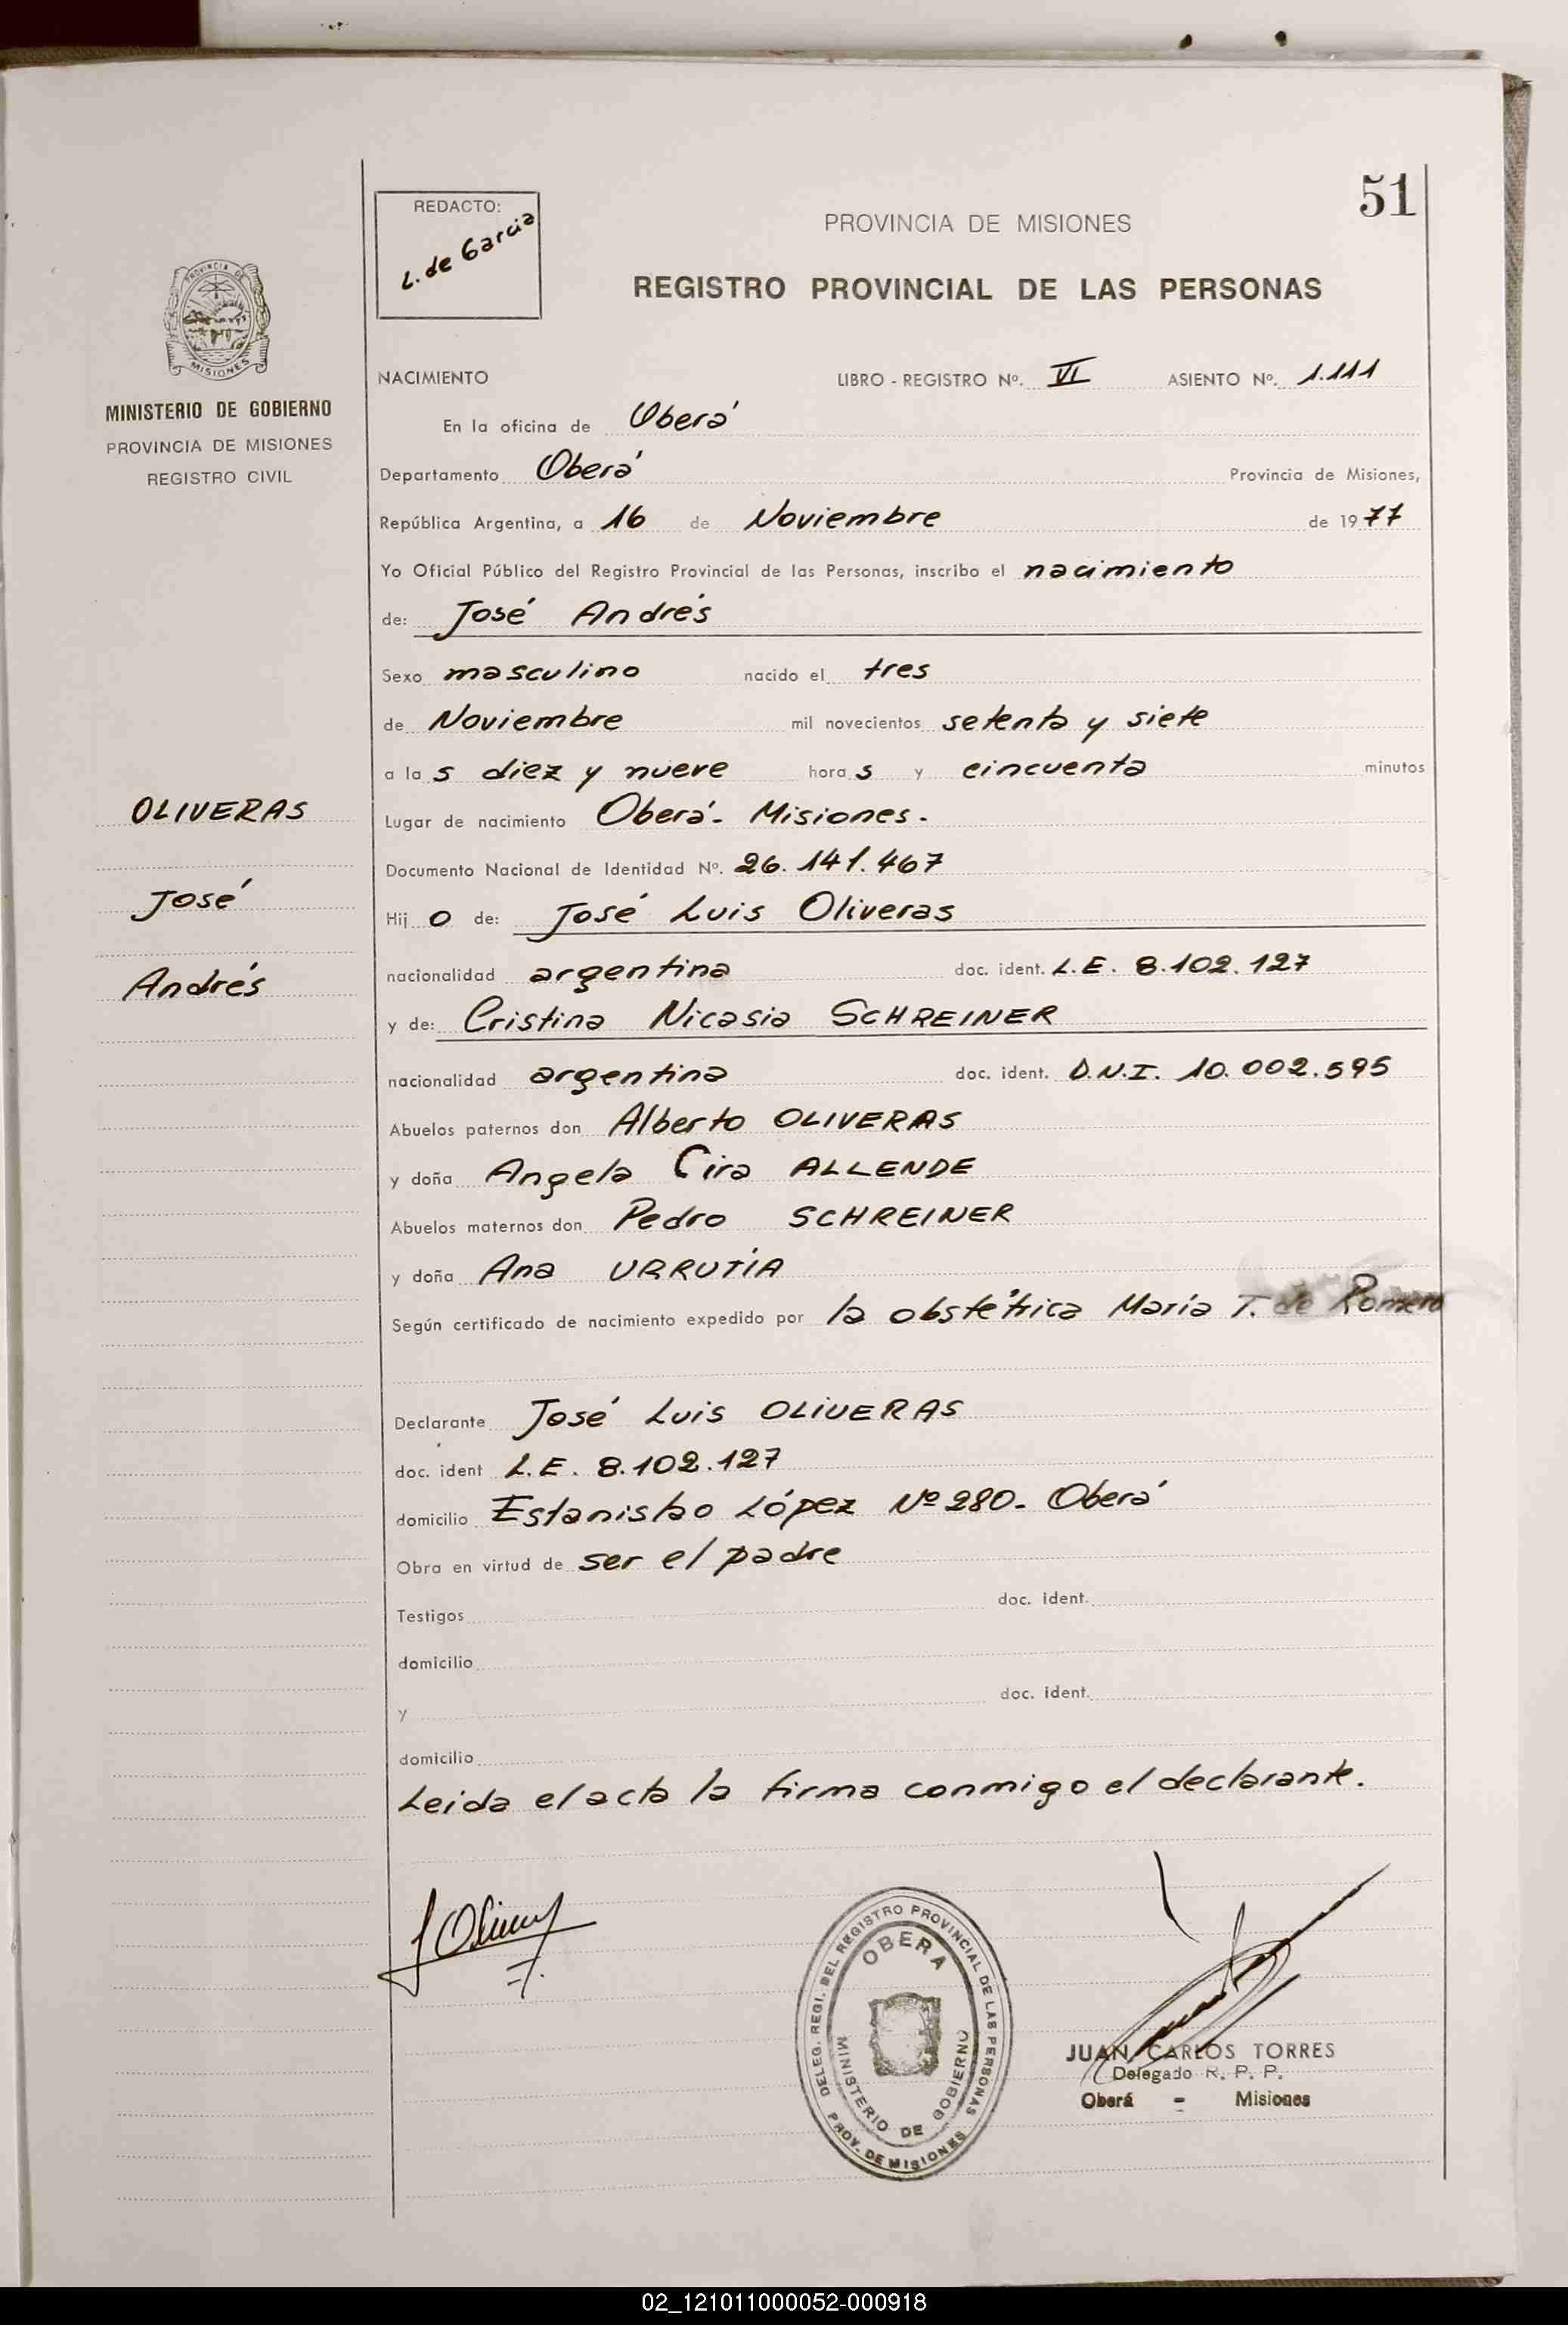 51
REDACTO:
L. de Garcia
PROVINCIA DE MISIONES
REGISTRO PROVINCIAL DE LAS PERSONAS
PROVINCIA DE
MISIONES
MINISTERIO DE GOBIERNO
PROVINCIA DE MISIONES
REGISTRO CIVIL
NACIMIENTO LIBRO - REGISTRO Nº. VI ASIENTO Nº. 1.111
En la oficina de Oberá
Departamento Oberá Provincia de Misiones,
República Argentina, a 16 de Noviembre de 1977
Yo Oficial Público del Registro Provincial de las Personas, inscribo el nacimiento
de: José Andrés
Sexo masculino nacido el tres
de Noviembre mil novecientos setenta y siete
a la s diez y nueve hora s y cincuenta minutos
OLIVERAS
José
Andrés
Lugar de nacimiento Oberá - Misiones.
Documento Nacional de Identidad Nº. 26.141.467
Hij o de: José Luis Oliveras
nacionalidad argentina doc. ident. L.E. 8.102.127
y de: Cristina Nicasia SCHREINER
nacionalidad argentina doc. ident. D.N.I. 10.002.595
Abuelos paternos don Alberto OLIVERAS
y doña Angela Cira ALLENDE
Abuelos maternos don Pedro SCHREINER
y doña Ana URRUTÍA
Según certificado de nacimiento expedido por la obstétrica María T. de Romero
Declarante José Luis OLIVERAS
doc. ident L.E. 8.102.127
domicilio Estanislao López Nº 280 - Oberá
Obra en virtud de ser el padre
Testigos doc. ident.
domicilio
y doc. ident.
domicilio
Leida el acta la firma conmigo el declarante.
DELEG. REGI. DEL REGISTRO PROVINCIAL DE LAS PERSONAS
OBERA
MINISTERIO DE GOBIERNO
PROV. DE MISIONES
JUAN CARLOS TORRES
Delegado R. P. P.
Oberá - Misiones
02_121011000052-000918